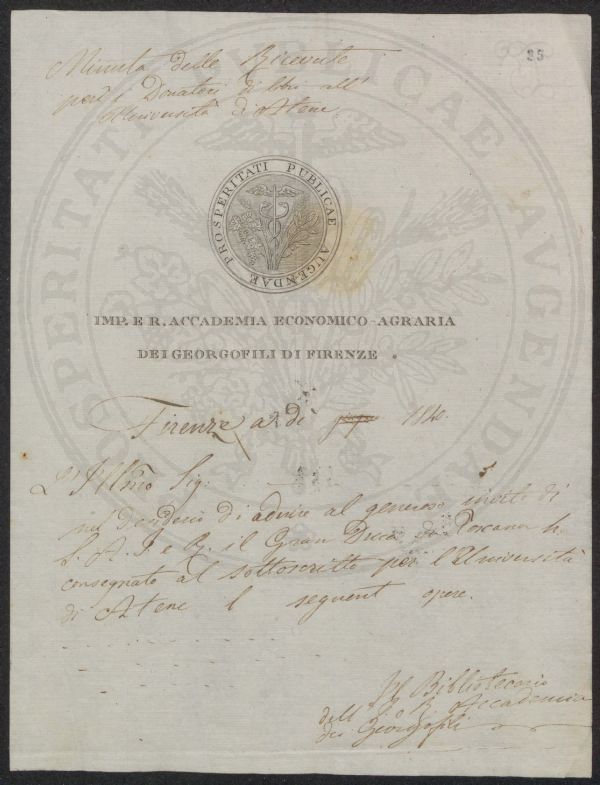 35
Minuta delle Ricevute
per i Donatori di libri all'
Università di Atene.
PROSPERITATI PUBLICAE AUGENDAE
IMP. E R. ACCADEMIA ECONOMICO-AGRARIA
DEI GEORGOFILI DI FIRENZE.
Firenze a dì 1840.
L'Illmo Sig:
nel desiderio di aderire al generoso invito di
S. A. I e R. il Gran Duca di Toscana h
consegnato al sottoscritto per l'Università
di Atene l seguent opere.
Il Bibliotecario
dell' I. R. Accademia
dei Georgofili